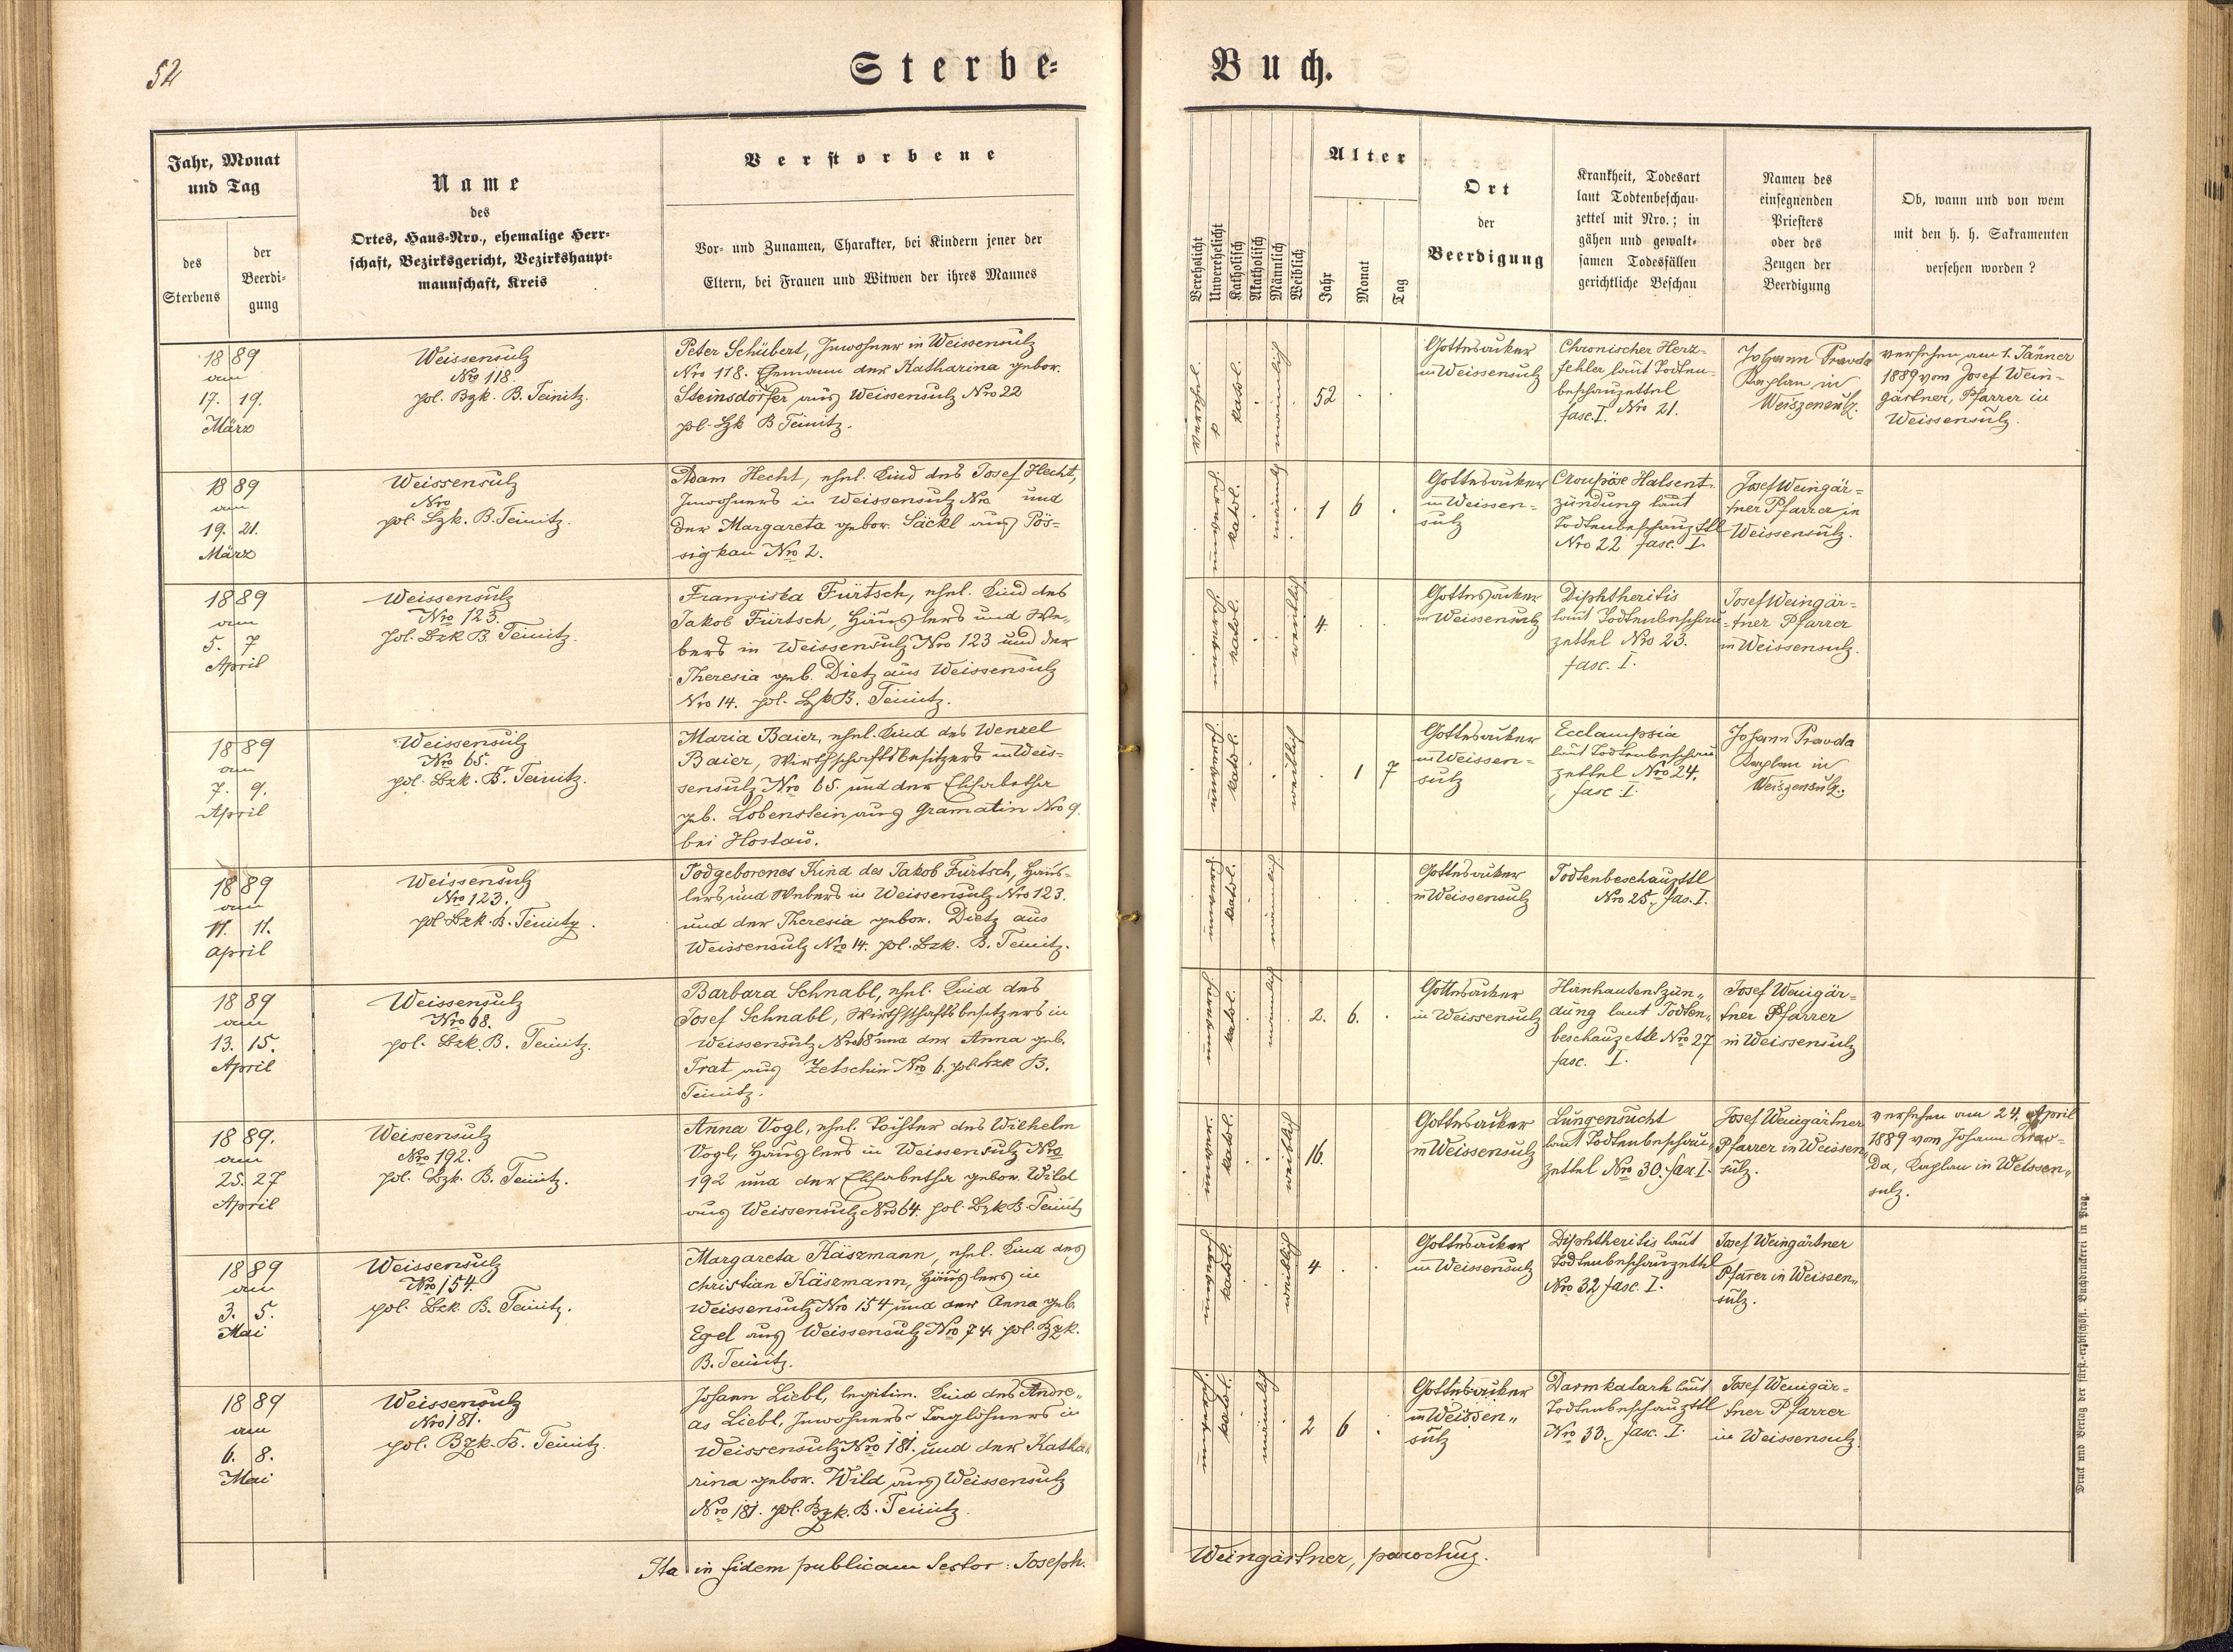 52
Sterbe-
Buch.
Jahr, Monat
und Tag
des
Sterbens
der
Beerdi-
gung
Name
des
Ortes, Haus-Nro., ehemalige Herr-
schaft, Bezirksgericht, Bezirkshaupt-
mannschaft, Kreis
Verstorbene
Vor- und Zunamen, Charakter, bei Kindern jener der
Eltern, bei Frauen und Witwen der ihres Mannes
Verehelicht
Unverehelicht
Katholisch
Akatholisch
Männlich
Weiblich
Alter
Jahr
Monat
Tag
Ort
der
Beerdigung
Krankheit, Todesart
laut Todtenbeschau-
zettel mit Nro.; in
gähen und gewalt-
samen Todesfällen
gerichtliche Beschau
Namen des
einsegnenden
Priesters
oder des
Zeugen der
Beerdigung
Ob, wann und von wem
mit den h. h. Sakramenten
versehen worden?
1889
am
17. 19.
März
Weissensulz
Nro 118.
pol. Bzk. B. Teinitz.
Peter Schubert, Inwohner in Weissensulz
Nro 118. Ehemann der Katharina gebor.
Steinsdörfer aus Weissensulz Nro 22
pol. Bzk B Teinitz.
verehelicht
kathol.
männlich
52
Gottesacker
in Weissensulz
Chronischer Herz-
fehler laut Todten-
beschauzettel
fasc. I. Nro 21.
Johann Pravda
Kaplan in
Weiszensulz.
versehen am 1. Jänner
1889 vom Josef Wein-
gärtner, Pfarrer in
Weissensulz.
1889
am
19. 21.
März
Weissensulz
Nro
pol. Bzk. B. Teinitz.
Adam Hecht, ehel. Kind des Josef Hecht,
Inwohners in Weissensulz Nro und
der Margareta gebor. Säckl aus Pös-
sigkau Nro 2.
kathol.
männlich
1 6
Gottesacker
in Weissen-
sulz
Croupöse Halsent-
zündung laut
Todtenbeschauzttl
Nro 22 fasc. I.
Josef Weingär-
tner Pfarrer in
Weissensulz.
1889
am
5. 7
April
Weissensulz
Nro 123.
pol. Bzk B. Teinitz.
Franziska Fürtsch, ehel. Kind des
Jakob Fürtsch, Häuslers und We-
bers in Weissensulz Nro 123 und der
Theresia geb. Dietz aus Weissensulz
Nro 14. pol. Bzk B. Teinitz.
kathol.
weiblich
4.
Gottesacker
in Weissensulz
Diphtheritis
laut Todtenbeschau-
zettel Nro 23.
fasc. I.
Josef Weingär-
tner Pfarrer
in Weissensulz.
1889
am
7. 9.
April
Weissensulz
Nro 65.
pol. Bzk. B. Teinitz.
Maria Baier, ehel. Kind des Wenzel
Baier, Wirthschaftsbesitzers in Weis-
sensulz Nro 65. und der Elisabetha
geb. Lobenstein aus Gramatin Nro 9.
bei Hostau.
kathol.
weiblich
1 7
Gottesacker
in Weissen-
sulz
Ecclampsia
laut Todtenbeschau
zettel Nro 24.
fasc. I.
Johann Pravda
Kaplan in
Weiszensulz.
1889
am
11. 11.
April
Weissensulz
Nro 123.
pol Bzk. B. Teinitz.
Todgeborenes Kind des Jakob Fürtsch, Häus-
lers und Webers in Weissensulz Nro 123.
und der Theresia gebor. Dietz aus
Weissensulz Nro 14. pol. Bzk. B. Teinitz.
kathol.
männlich
Gottesacker
in Weissensulz
Todtenbeschauzttl
Nro 25. fas. I.
1889
am
13. 15.
April
Weissensulz
Nro 68.
pol. Bzk. B. Teinitz.
Barbara Schnabl, ehel. Kind des
Josef Schnabl, Wirthschaftsbesitzers in
Weissensulz Nro 68 und der Anna geb.
Trat aus Zetschin Nro 6. pol. Bzk B.
Teinitz.
kathol.
männlich
2. 6.
Gottesacker
in Weissensulz
Hirnhautentzün-
dung laut Todten-
beschauzettl Nro 27
fasc. I.
Josef Weingär-
tner Pfarrer
in Weissensulz
1889.
am
25. 27
April
Weissensulz
Nro 192.
pol. Bzk. B. Teinitz.
Anna Vogl, ehel. Tochter des Wilhelm
Vogl, Häuslers in Weissensulz Nro
192 und der Elisabetha gebor. Wild
aus Weissensulz Nro 64. pol. Bzk B. Teinitz
kathol.
weiblich
16.
Gottesacker
in Weissensulz
Lungensucht
laut Todtenbeschau-
zettel Nro 30. fas I.
Josef Weingärtner
Pfarrer in Weissen-
sulz.
versehen am 24. April
1889 von Johann Prav-
da, Kaplan in Weissen-
sulz.
1889
am
3. 5.
Mai
Weissensulz
Nro 154.
pol. Bzk. B. Teinitz.
Margareta Käszmann, ehel. Kind des
Christian Käszmann, Häuslers in
Weissensulz Nro 154 und der Anna geb.
Egel aus Weissensulz Nro 74. pol. Bzk.
B. Teinitz.
kathol.
weiblich
4
Gottesacker
in Weissensulz
Diphtheritis laut
Todtenbeschauzettel
Nro 32 fasc. I.
Josef Weingärtner
Pfarrer in Weissen-
sulz.
1889
am
6. 8.
Mai
Weissensulz
Nro 181.
pol. Bzk. B. Teinitz.
Johann Liebl, legitim. Kind des Andre-
as Liebl, Inwohners Taglöhners in
Weissensulz Nro 181. und der Katha-
rina gebor. Wild aus Weissensulz
Nro 181. pol. Bzk. B. Teinitz.
kathol.
männlich
2 6
Gottesacker
in Weissen-
sulz
Darmkatarh laut
Todtenbeschauzttl
Nro 33. fasc. I.
Josef Weingär-
tner Pfarrer
in Weissensulz.
Ita in fidem publicam testor: Joseph.
Weingärtner, parochus.
Druck und Verlag der fürst.-erzbischöfl. Buchdruckerei in Prag.